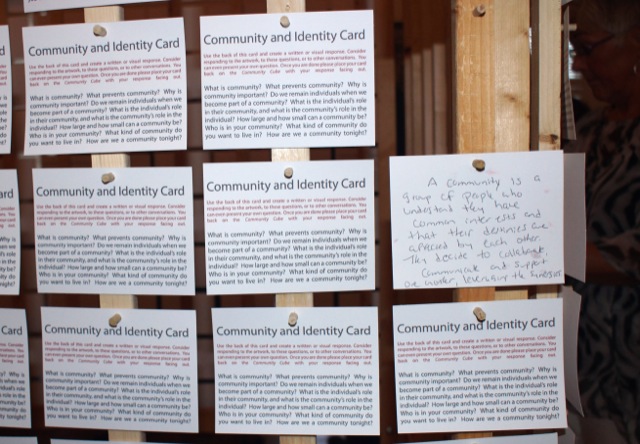 Community and Identity Card
Use the back of this card and create a written or visual response. Consider
responding to the artwork, to these questions, or to other conversations. You
can even present your own question. Once you are done please place your card
back on the Community Cube with your response facing out.
What is community? What prevents community? Why is
community important? Do we remain individuals when we
become part of a community? What is the individual's role
in their community, and what is the community's role in the
individual? How large and how small can a community be?
Who is in your community? What kind of community do
you want to live in? How are we a community tonight?
Community and Identity Card
Use the back of this card and create a written or visual response. Consider
responding to the artwork, to these questions, or to other conversations. You
can even present your own question. Once you are done please place your card
back on the Community Cube with your response facing out.
What is community? What prevents community? Why is
community important? Do we remain individuals when we
become part of a community? What is the individual's role
in their community, and what is the community's role in the
individual? How large and how small can a community be?
Who is in your community? What kind of community do
you want to live in? How are we a community tonight?
Community and Identity Card
Use the back of this card and create a written or visual response. Consider
responding to the artwork, to these questions, or to other conversations. You
can even present your own question. Once you are done please place your card
back on the Community Cube with your response facing out.
What is community? What prevents community? Why is
community important? Do we remain individuals when we
become part of a community? What is the individual's role
in their community, and what is the community's role in the
individual? How large and how small can a community be?
Who is in your community? What kind of community do
you want to live in? How are we a community tonight?
Community and Identity Card
Use the back of this card and create a written or visual response. Consider
responding to the artwork, to these questions, or to other conversations. You
can even present your own question. Once you are done please place your card
back on the Community Cube with your response facing out.
What is community? What prevents community? Why is
community important? Do we remain individuals when we
become part of a community? What is the individual's role
in their community, and what is the community's role in the
individual? How large and how small can a community be?
Who is in your community? What kind of community do
you want to live in? How are we a community tonight?
A community is a
group of people who
understand they have
common interests and
that their destinies are
affected by each other.
They decide to collaborate,
communicate and support
one another, leveraging the
Community and Identity Card
Use the back of this card and create a written or visual response. Consider
responding to the artwork, to these questions, or to other conversations. You
can even present your own question. Once you are done please place your card
back on the Community Cube with your response facing out.
What is community? What prevents community? Why is
community important? Do we remain individuals when we
become part of a community? What is the individual's role
in their community, and what is the community's role in the
individual? How large and how small can a community be?
Who is in your community? What kind of community do
you want to live in? How are we a community tonight?
Community and Identity Card
Use the back of this card and create a written or visual response. Consider
responding to the artwork, to these questions, or to other conversations. You
can even present your own question. Once you are done please place your card
back on the Community Cube with your response facing out.
What is community? What prevents community? Why is
community important? Do we remain individuals when we
become part of a community? What is the individual's role
in their community, and what is the community's role in the
individual? How large and how small can a community be?
Who is in your community? What kind of community do
you want to live in? How are we a community tonight?
Community and Identity Card
Use the back of this card and create a written or visual response. Consider
responding to the artwork, to these questions, or to other conversations. You
can even present your own question. Once you are done please place your card
back on the Community Cube with your response facing out.
What is community? What prevents community? Why is
community important? Do we remain individuals when we
become part of a community? What is the individual's role
in their community, and what is the community's role in the
individual? How large and how small can a community be?
Who is in your community? What kind of community do
you want to live in? How are we a community tonight?